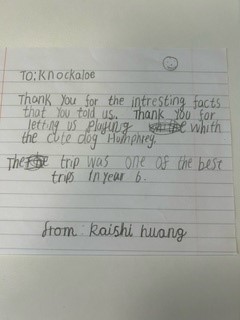 To: Knockaloe
Thank you for the intresting facts
that you told us. Thank you for
letting us playing whith
the cute dog Humphrey.
The trip was one of the best
trips in year 6.
from: Kaishi huang